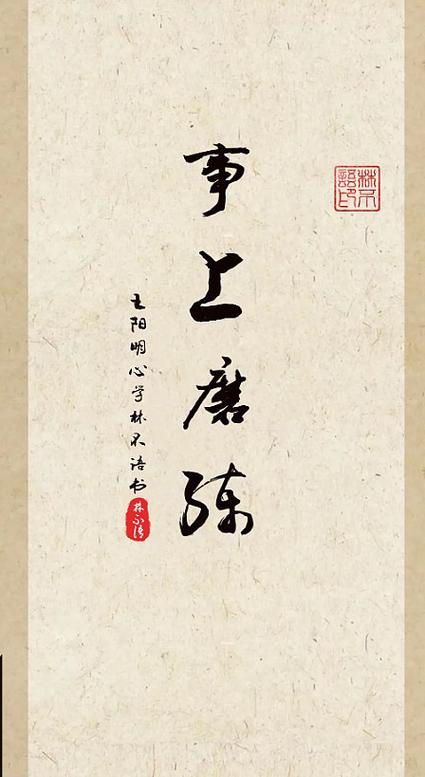 林不
語印
事上磨練
王阳明心学林不语书
林不语